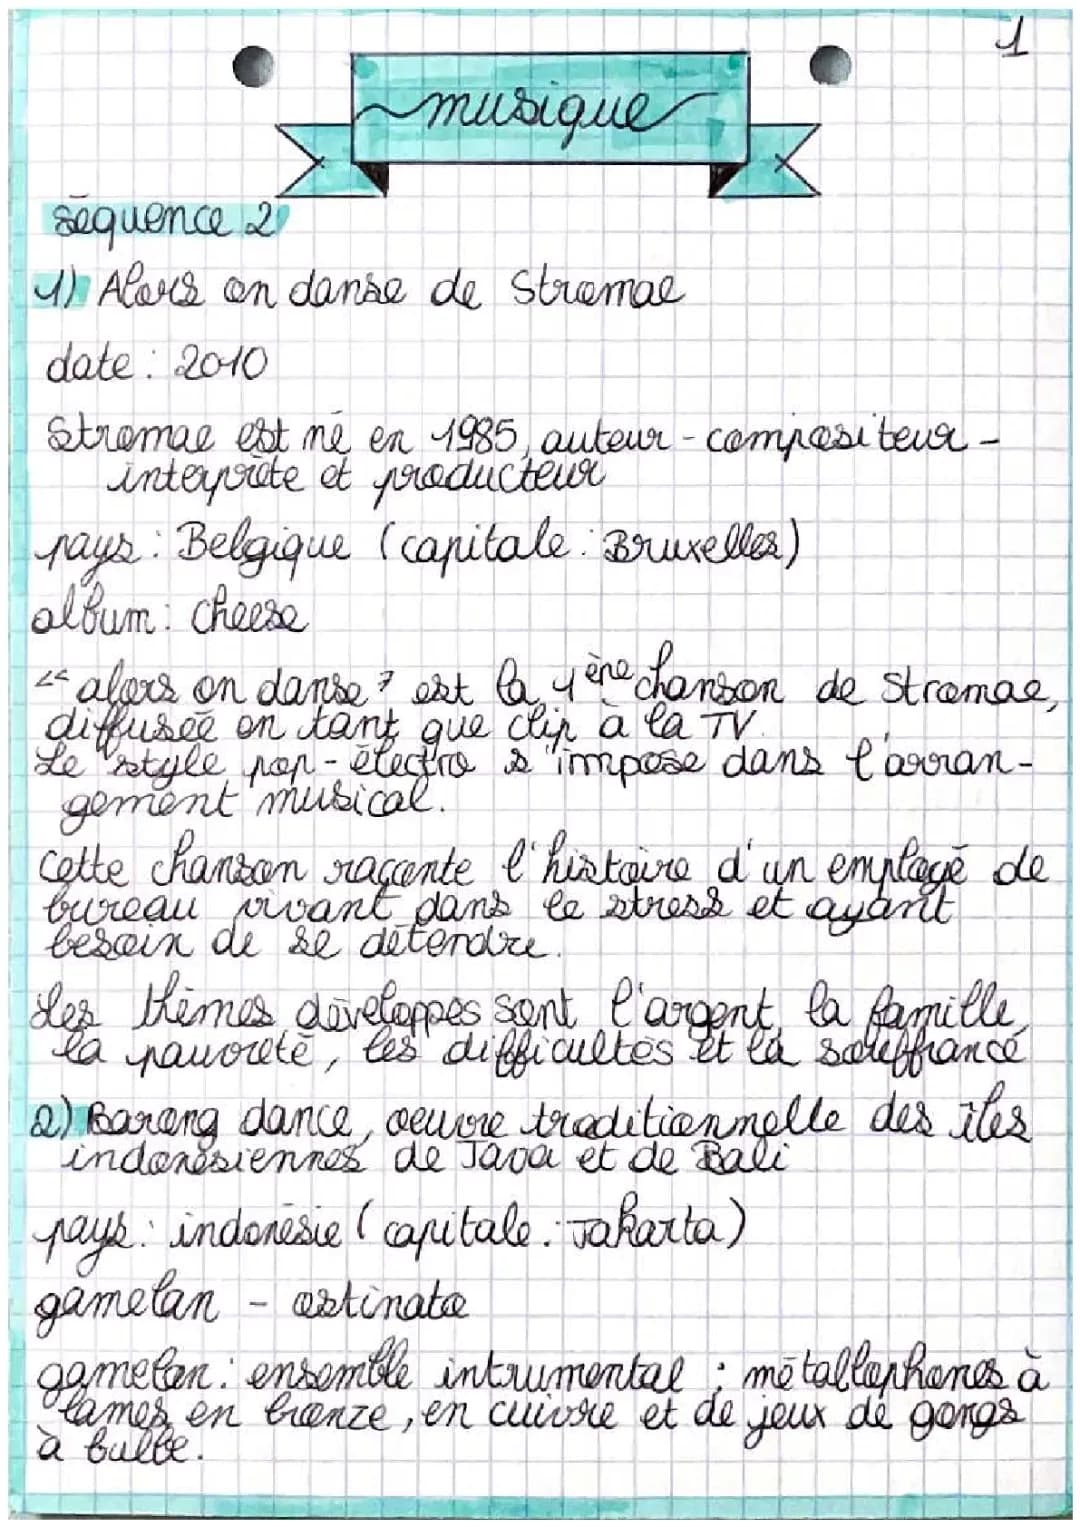 1
musique
séquence 2
1) Alors on danse de Stromae
date : 2010
Stromae est né en 1985, auteur - compositeur -
interprète et producteur
pays : Belgique (capitale : Bruxelles)
album : cheese
"alors on danse" est la 1ère chanson de Stromae,
diffusée en tant que clip à la TV.
Le style pop-électro s'impose dans l'arran-
gement musical.
Cette chanson raconte l'histoire d'un employé de
bureau vivant dans le stress et ayant
besoin de se détendre.
Les thèmes développés sont l'argent, la famille,
la pauvreté, les difficultés et la souffrance
2) Barong dance, oeuvre traditionnelle des îles
indonésiennes de Java et de Bali
pays : indonésie (capitale : Jakarta)
gamelan - ostinato
gamelan : ensemble intrumental : métallophones à
lames en bronze, en cuivre et de jeux de gongs
à bulbe.